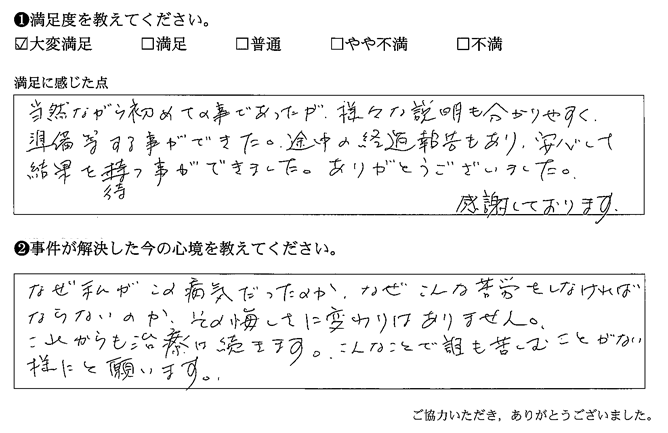 ❶満足度を教えてください。
☑大変満足 □満足 □普通 □やや不満 □不満
満足に感じた点
当然ながら初めての事であったが、様々な説明も分かりやすく、
準備等する事ができた。途中の経過報告もあり、安心して
結果を待つ事ができました。ありがとうございました。
感謝しております。
❷事件が解決した今の心境を教えてください。
なぜ私がこの病気だったのか、なぜこんな苦労をしなければ
ならないのか、その悔しさに変わりはありません。
これからも治療は続きます。こんなことで誰も苦しむことがない
様にと願います。
ご協力いただき，ありがとうございました。